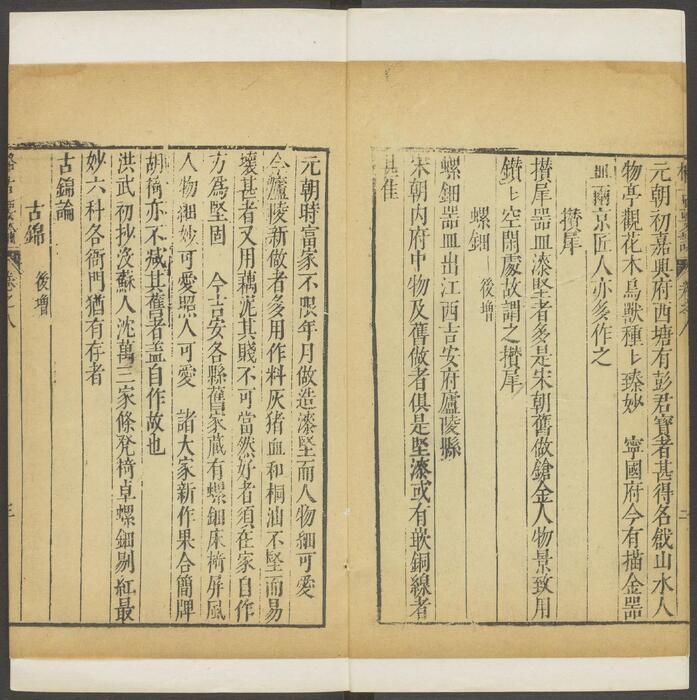 元朝初嘉興府西塘有彭君寶者甚得名戧山水人
物亭觀花木鳥獸種〻臻妙　寧國府今有描金器
皿兩京匠人亦多作之
攢犀
攢犀器皿漆堅者多是宋朝舊做鎗金人物景致用
鑽〻空閒處故謂之攢犀
螺鈿　後增
螺鈿器皿出江西吉安府廬陵縣
宋朝内府中物及舊做者俱是堅漆或有嵌銅線者
甚佳
元朝時富家不限年月做造漆堅而人物細可愛
今廬陵新做者多用作料灰猪血和桐油不堅而易
壞甚者又用藕泥其賤不可當然好者須在家自作
方爲堅固　今吉安各縣舊家藏有螺鈿床椅屏風
人物細妙可愛照人可愛　諸大家新作果合簡牌
胡椅亦不减其舊者盖自作故也
洪武初抄没蘇人沈萬三家條凳椅卓螺鈿剔紅最
妙六科各衙門猶有存者
古錦論
古錦　後增
卷之八
三